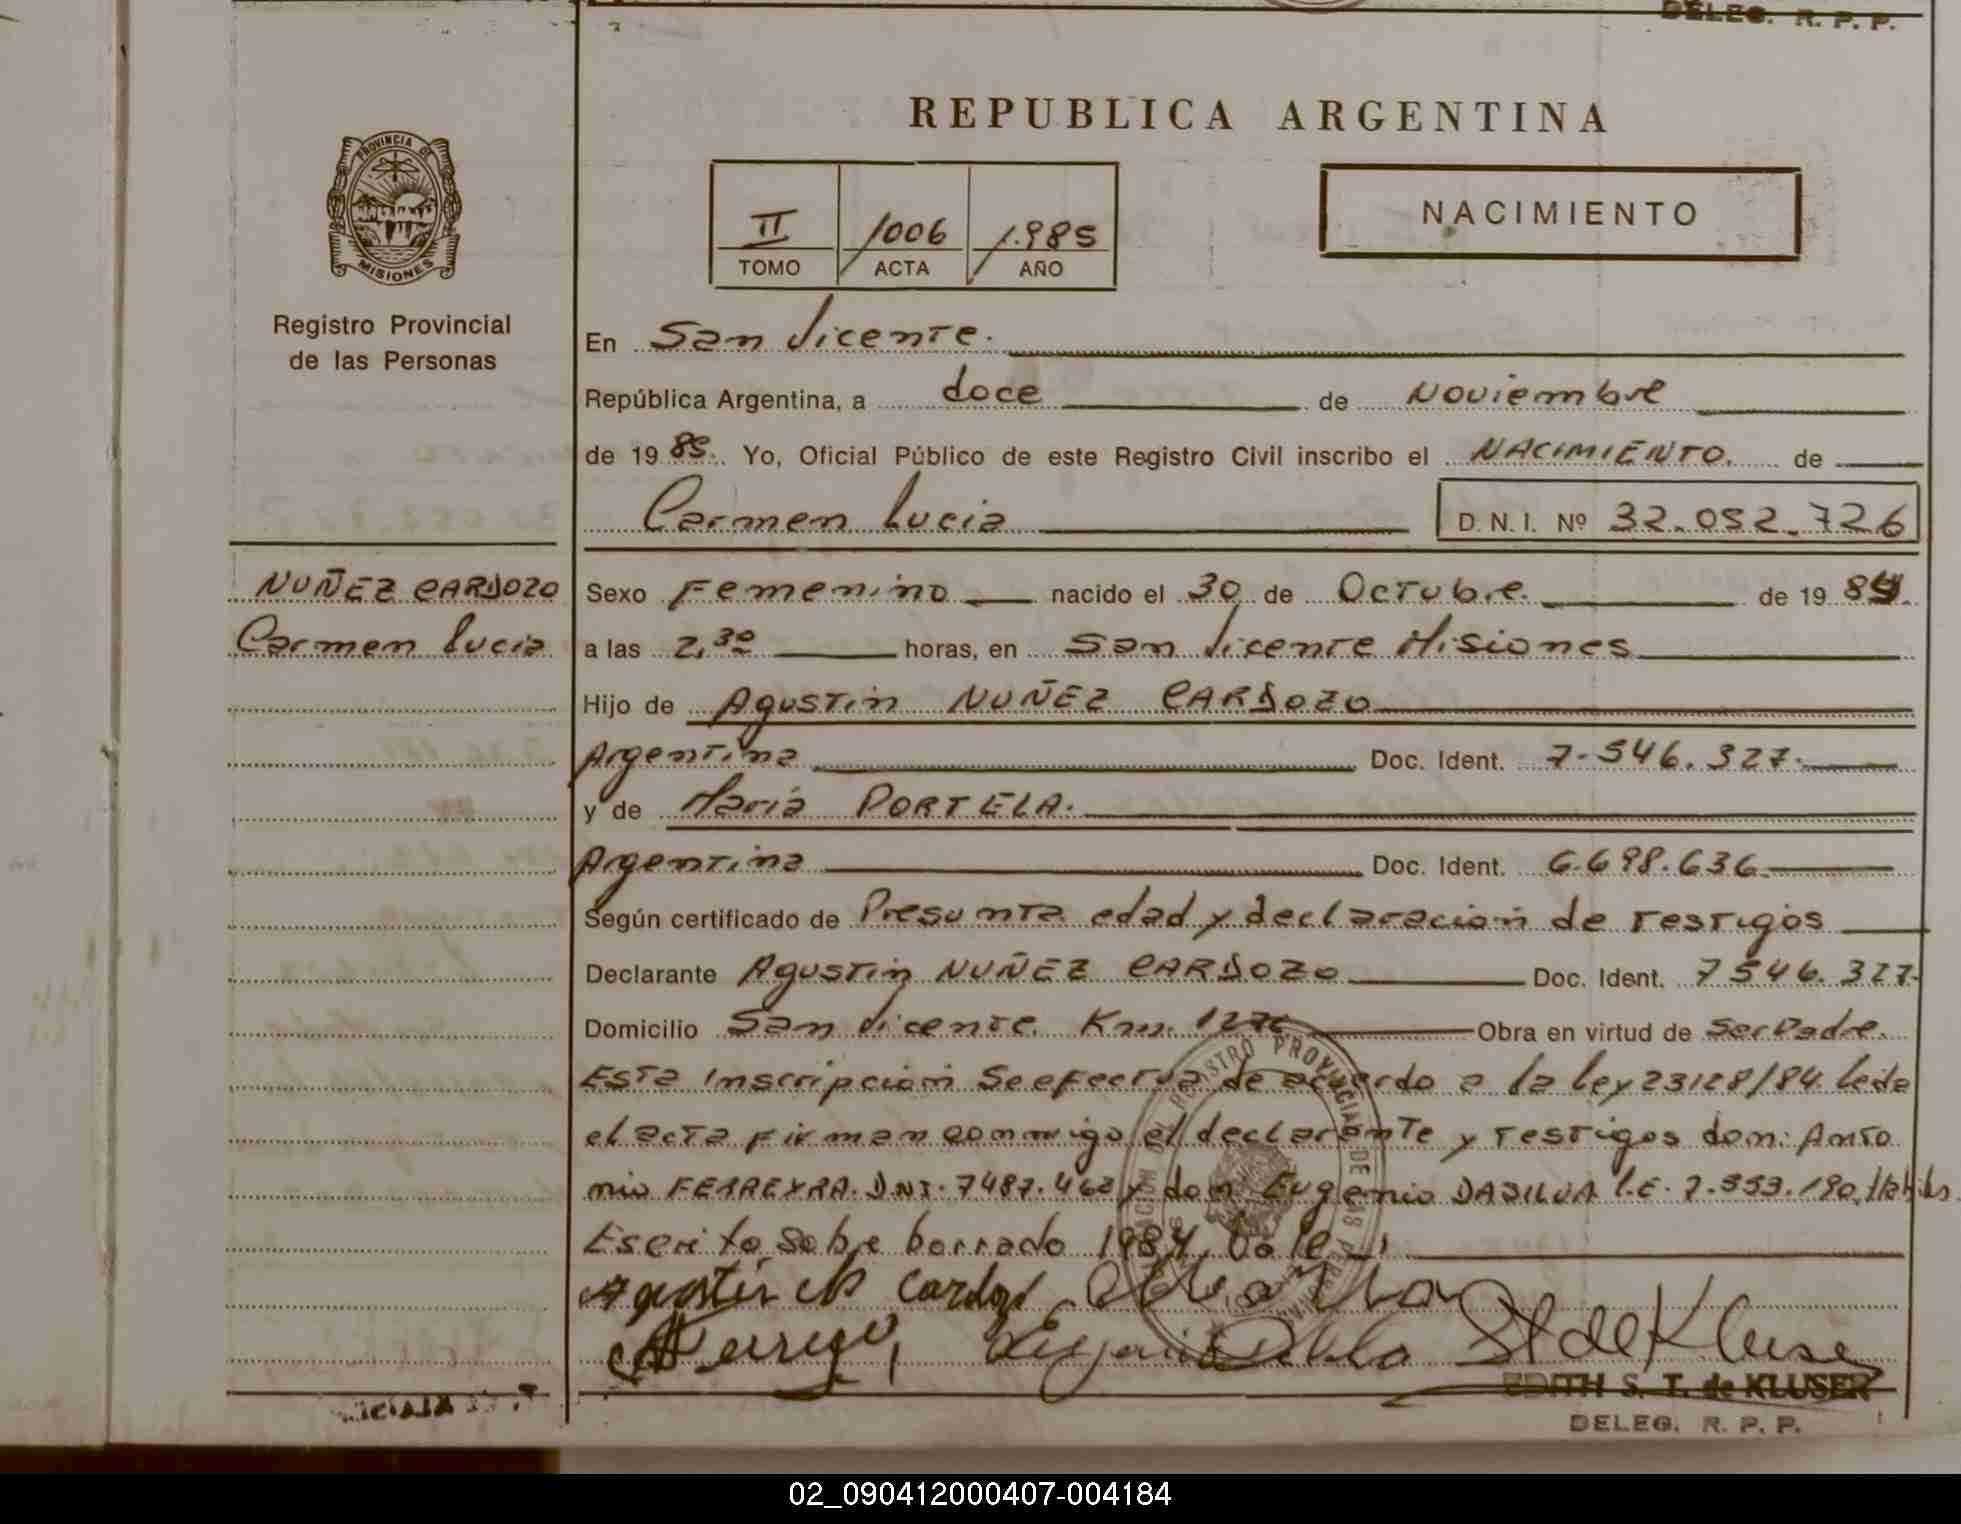 DELEG. R. P. P.
REPUBLICA ARGENTINA
PROVINCIA DE
MISIONES
II 1006 1.985
TOMO ACTA AÑO
NACIMIENTO
Registro Provincial
de las Personas
En San Vicente.
República Argentina, a doce de Noviembre
de 19 85. Yo, Oficial Público de este Registro Civil inscribo el NACIMIENTO. de
Carmen Lucia D. N. I. Nº 32.052.726
NUÑEZ CARDOZO
Carmen Lucia
Sexo Femenino nacido el 30 de Octubre. de 19 84.
a las 2,30 horas, en San Vicente Misiones
Hijo de Agustin NUÑEZ CARDOZO
Argentina Doc. Ident. 7.546.327.
y de Maria PORTELA.
Argentina Doc. Ident. 6.698.636.
Según certificado de Presunta edad y declaración de testigos
Declarante Agustin NUÑEZ CARDOZO Doc. Ident. 7546.327.
Domicilio San Vicente. Km. 1276 Obra en virtud de Ser Padre.
Esta Inscripción Se efectua de acuerdo a la Ley 23128/84. Leida
el acta firman conmigo el declarante y testigos don: Anto
nio FERREYRA. D.N.I. 7487.462 y don Eugenio DASILVA L.E. 7.553.190, Habiles
Escrito sobre borrado 1984, Vale
Agustin N Cardozo
St de Kluser
EDITH S. T. de KLUSER
DELEG. R. P. P.
02_090412000407-004184